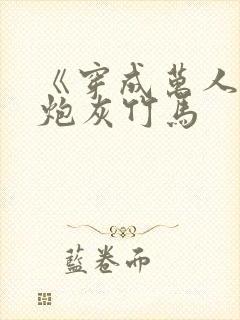 《穿成萬人
炮灰竹馬
藍卷而